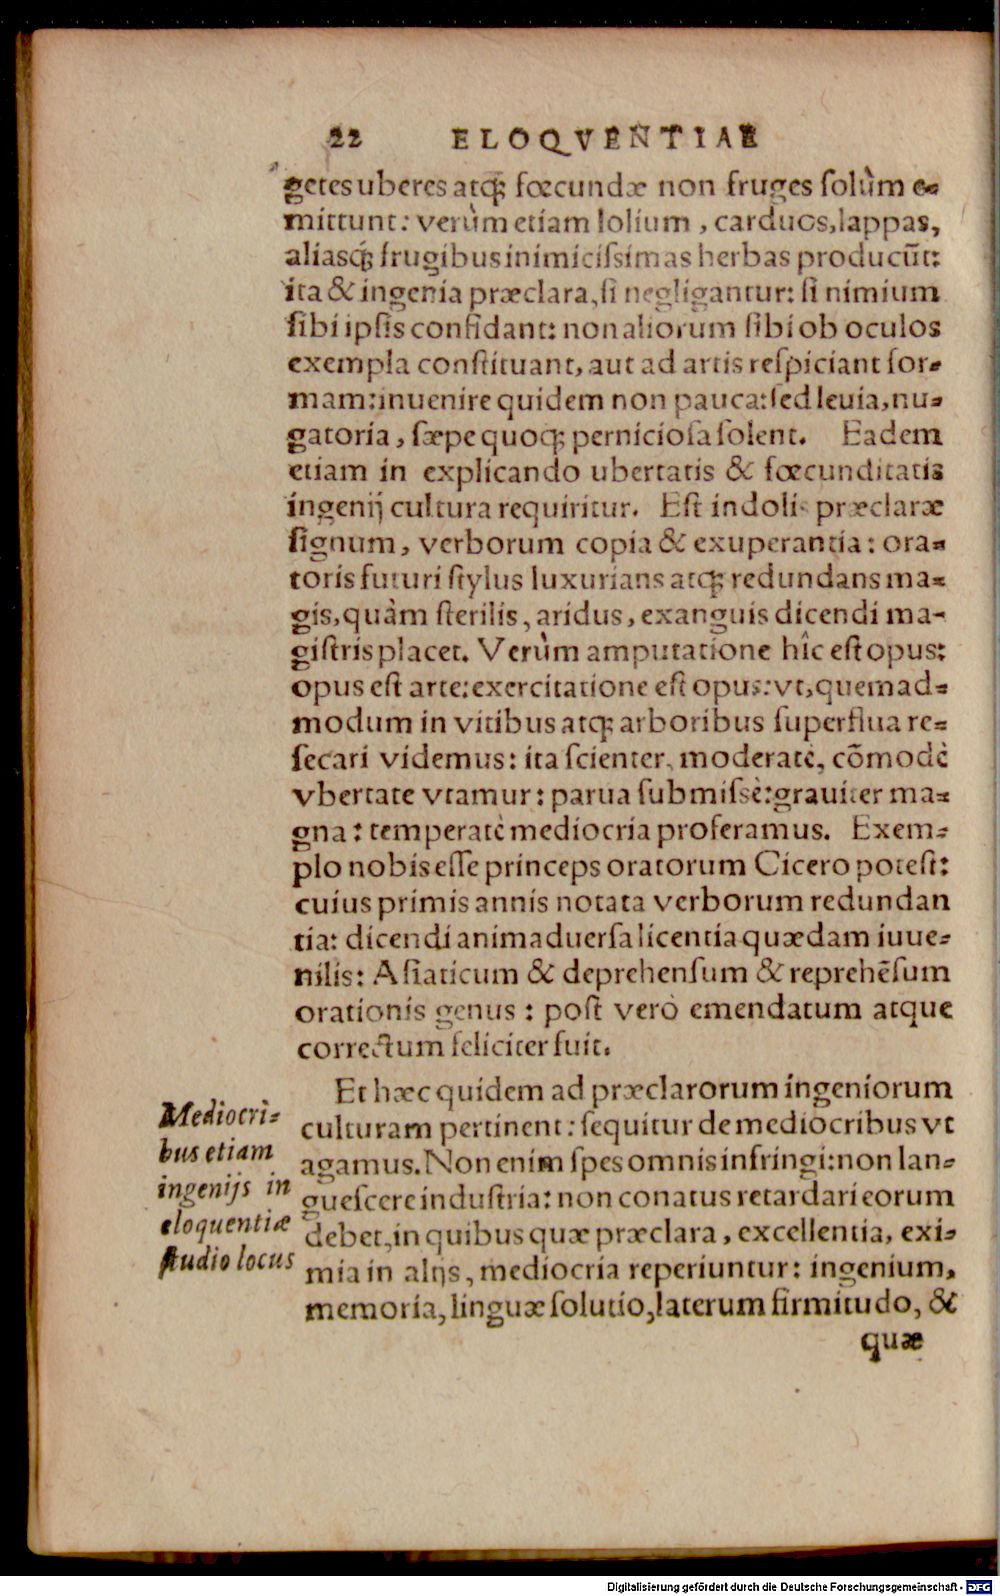 22 ELOQVENTIAE
getes uberes atq; fœcundæ non fruges ſolùm e-
mittunt: verùm etiam lolium, carduos, lappas,
aliasq́; frugibus inimiciſſimas herbas producūt:
ita & ingenia præclara, ſi negligantur: ſi nimium
ſibi ipſis confidant: non aliorum ſibi ob oculos
exempla conſtituant, aut ad artis reſpiciant for-
mam: inuenire quidem non pauca: ſed leuia, nu-
gatoria, ſæpe quoq; pernicioſa ſolent. Eadem
etiam in explicando ubertatis & fœcunditatis
ingenij cultura requiritur. Eſt indolis præclaræ
ſignum, verborum copia & exuperantia: ora-
toris futuri ſtylus luxurians atq; redundans ma-
gis, quàm ſterilis, aridus, exanguis dicendi ma-
giſtris placet. Verùm amputatione hîc eſt opus:
opus eſt arte: exercitatione eſt opus: vt, quemad-
modum in vitibus atq; arboribus ſuperflua re-
ſecari videmus: ita ſcienter, moderatè, cōmodè
vbertate vtamur: parua ſubmiſsè: grauiter ma-
gna: temperatè mediocria proferamus. Exem-
plo nobis eſſe princeps oratorum Cicero poteſt:
cuius primis annis notata verborum redundan
tia: dicendi animaduerſa licentia quædam iuue-
nilis: Aſiaticum & deprehenſum & reprehēſum
orationis genus: poſt verò emendatum atque
correctum feliciter fuit.
Et hæc quidem ad præclarorum ingeniorum
culturam pertinent: ſequitur de mediocribus vt
agamus. Non enim ſpes omnis infringi: non lan-
gueſcere induſtria: non conatus retardari eorum
debet, in quibus quæ præclara, excellentia, exi-
mia in alijs, mediocria reperiuntur: ingenium,
memoria, linguæ ſolutio, laterum firmitudo, &
quæ
Mediocri-
bus etiam
ingenijs in
eloquentiæ
ſtudio locus
Digitalisierung gefördert durch die Deutsche Forschungsgemeinschaft - DFG